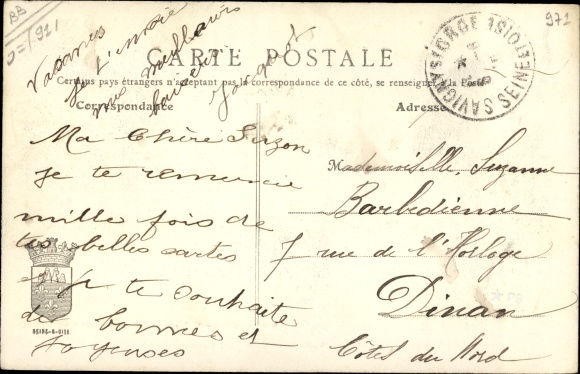 BB
J=1921
971
CARTE POSTALE
Certains pays étrangers n'acceptant pas la correspondance de ce côté, se renseigner à la Poste
Correspondance
Adresse
Ma Chère Suzon
je te remercie
mille fois de
tes belles cartes
je te souhaite
de bonnes et
joyeuses
vacances
Je t'envoie
mes meilleurs
baisers
SEINE-&-OISE
SAVIGNY S/ ORGE
SEINE ET OISE
Mademoiselle Suzanne
Barbedienne
7 rue de l'Horloge
Dinan
Côtes du Nord